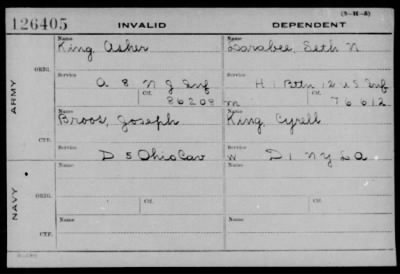 (3-H-5)
126405 INVALID DEPENDENT
ARMY
ORIG.
Name
King Asher
Name
Larabee, Seth N
Service
A 8 N J Inf
Service
H 1 Bttn 12 U S Inf
Ctf.
86208
m
Ctf.
76612
CTF.
Name
Broos, Joseph
Name
King, Cyrell
Service
D 5 Ohio Cav
Service
W D 1 N Y L A
NAVY
ORIG.
Name
Name
Service
Ctf.
Service
Ctf.
CTF.
Name
Name
Service
Service